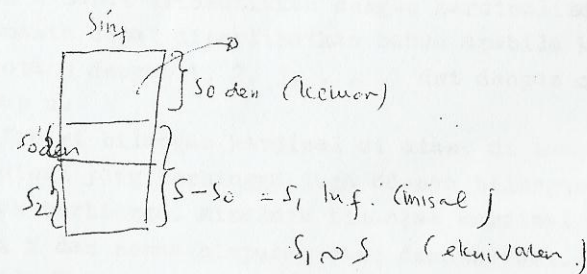 S inf
So den (keluar)
So'den
S2
S-So = S1 Inf. (misal)
S1 ~ S (ekuivalen)